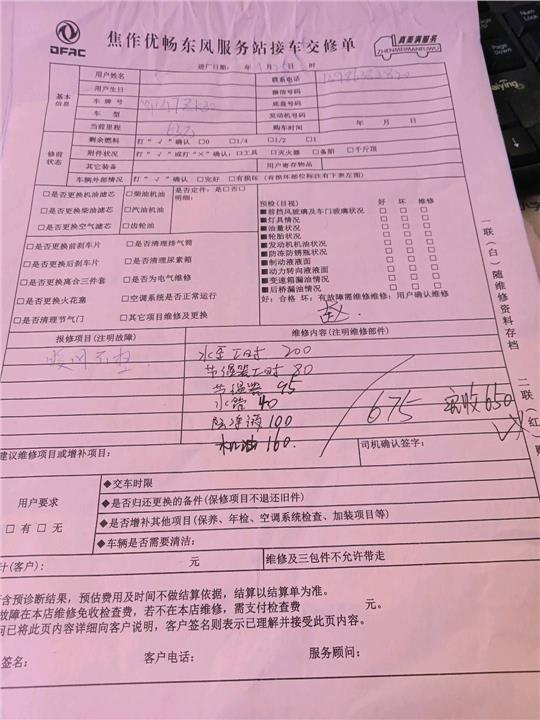 DFAC
焦作优畅东风服务站接车交修单
真面满服务
ZHENMEIMANFUWU
进厂日期： 年 月 日 时
基本信息
用户姓名
联系电话
用户生日
微信号码
车牌号
底盘号
车型
发动机号码
当前里程
购车时间
年 月 日
修前状态
剩余燃料
打“√”确认 □0 □1/4 □1/2 □1
附件状况
打“√”或打“×”确认：□工具 □灭火器 □备胎 □千斤顶
其它装备
用户寄存物品
车辆外部情况
打“√”确认 □完好 □有损坏（有损坏部位标注右下表左图）
□是否更换机油滤芯 □柴油机油 是否定件：是□否□
明细：
□是否更换柴油滤芯 □汽油机油
□是否更换空气滤芯 □齿轮油
□是否更换前刹车片 □是否清理排气筒
□是否更换后刹车片 □是否清理尿素箱
□是否更换离合三件套 □是否为电气维修
□是否更换火花塞 □空调系统是否正常运行
□是否清理节气门 □其它项目维修及更换
预检(目视) 好 坏 维修
■前挡风玻璃及车门玻璃状况 □ □ □
■灯具情况 □ □ □
■油量状况 □ □ □
■轮胎状况 □ □ □
■发动机机油状况 □ □ □
■防冻防锈瓶状况 □ □ □
■制动液液面 □ □ □
■动力转向液液面 □ □ □
■变速箱漏油情况 □ □ □
■后桥漏油情况 □ □ □
好：合格 坏：有故障需维修维修：用户确认维修
报修项目(注明故障)
维修内容(注明维修部件)
暖风不热
水泵工时 200
节温器工时 80
节温器 95
水管 40
防冻液 100
机油 160
675
实收650
建议维修项目或增补项目：
司机确认签字：
用户要求
□有 □无
◆交车时限
◆是否归还更换的备件(保修项目不退还旧件)
◆是否增补其他项目(保养、年检、空调系统检查、加装项目等)
◆车辆是否需要清洁：
计(客户)： 元
维修及三包件不允许带走
含预诊断结果，预估费用及时间不做结算依据，结算以结算单为准。
故障在本店维修免收检查费，若不在本店维修，需支付检查费 元。
司已将此页内容详细向客户说明，客户签名则表示已理解并接受此页内容。
签名： 客户电话： 服务顾问：
一联（白）随维修资料存档
二联（红